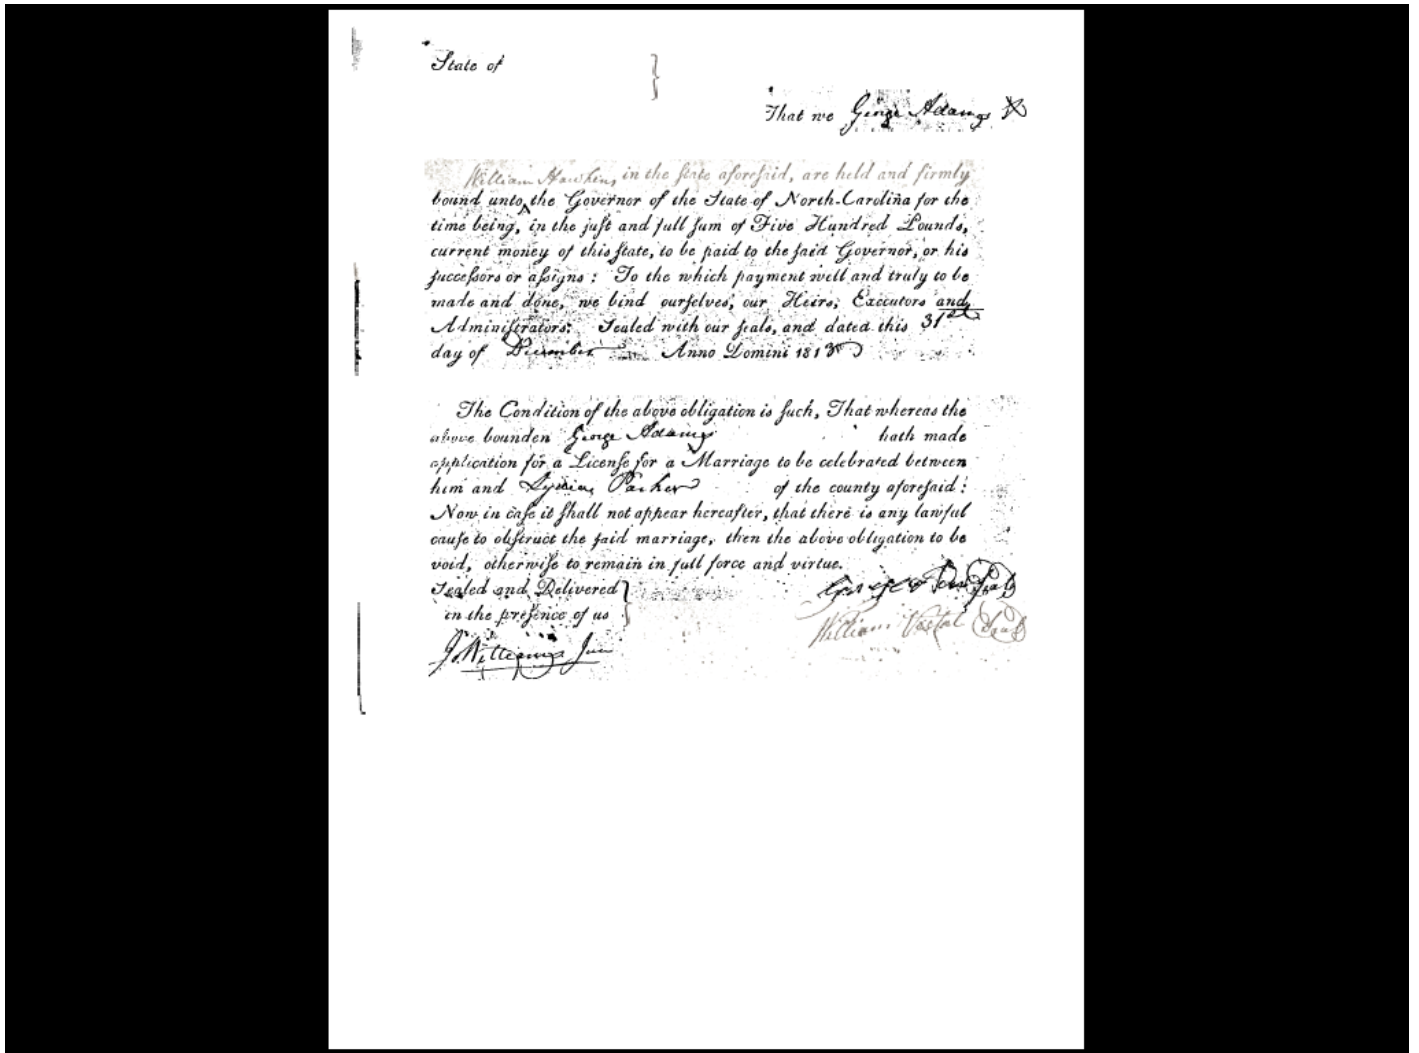 State of
That we George Adams &
William Hawkins in the ſtate aforeſaid, are held and firmly
bound unto ‸ the Governor of the State of North-Carolina for the
time being, in the juſt and full ſum of Five Hundred Pounds,
current money of this ſtate, to be paid to the ſaid Governor, or his
ſucceſſors or aſſigns: To the which payment well and truly to be
made and done, we bind ourſelves, our Heirs, Executors and
Adminiſtrators. Sealed with our ſeals, and dated this 31st
day of December Anno Domini 1813
The Condition of the above obligation is ſuch, That whereas the
above bounden George Adams hath made
application for a Licenſe for a Marriage to be celebrated between
him and Lydia Parker of the county aforeſaid:
Now in caſe it ſhall not appear hereafter, that there is any lawful
cauſe to obſtruct the ſaid marriage, then the above obligation to be
void, otherwiſe to remain in full force and virtue.
Sealed and Delivered
in the preſence of us
William Vestal (Seal)
J. Williams Jun